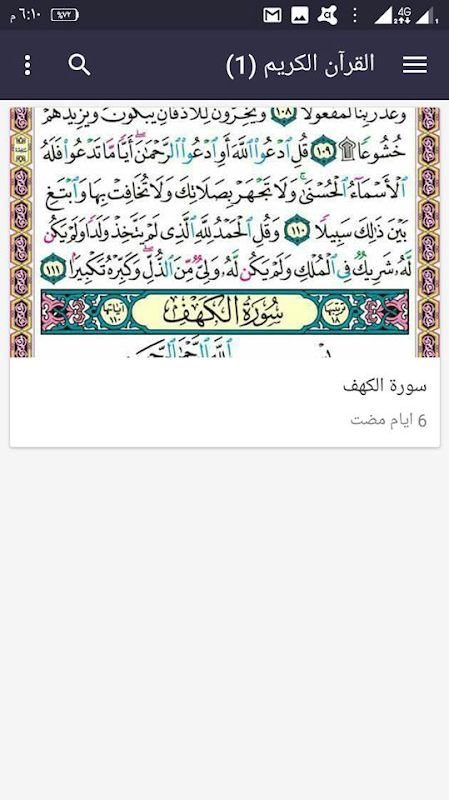 ٦:١٠ م
%٧٢
4G
القرآن الكريم (1)
وعد ربنا لمفعولا ١٠٨ ويخرون للأذقان يبكون ويزيدهم
خُشُوعًا ۩ ١٠٩ قُلِ ادْعُوا اللَّهَ أَوِ ادْعُوا الرَّحْمَٰنَ أَيًّا مَّا تَدْعُوا فَلَهُ
الْأَسْمَاءُ الْحُسْنَىٰ وَلَا تَجْهَرْ بِصَلَاتِكَ وَلَا تُخَافِتْ بِهَا وَابْتَغِ
بَيْنَ ذَٰلِكَ سَبِيلًا ١١٠ وَقُلِ الْحَمْدُ لِلَّهِ الَّذِي لَمْ يَتَّخِذْ وَلَدًا وَلَمْ يَكُن
لَّهُ شَرِيكٌ فِي الْمُلْكِ وَلَمْ يَكُن لَّهُ وَلِيٌّ مِّنَ الذُّلِّ وَكَبِّرْهُ تَكْبِيرًا ١١١
ترتيبها ١٨
سُورَةُ الْكَهْفِ
آياتها ١١٠
بسم الله الرحمن الرحيم
سورة الكهف
6 ايام مضت